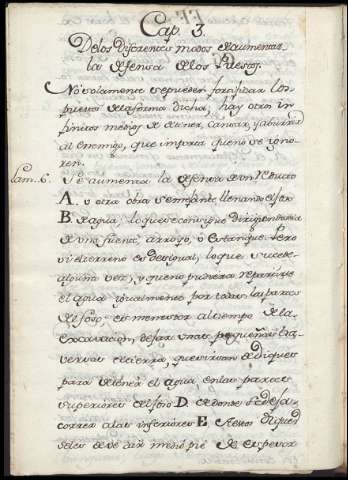 Cap. 3.
De los diferentes modos de aumentar
la defensa de los Puestos.
No solamente se pueden fortificar los
puestos de la forma dicha, hay otros in
finitos medios de detener, cansar, y aburrir
al enemigo, que importa que no se igno
ren.
Lam. 6. Se aumenta la defensa de un Reducto
A. u otra obra semejante llenando el foso
B de agua; lo que se consigue dirigiendo la
de una fuente, arroyo, ó estanque. Pero
si el terreno es desigual, lo que sucede
alguna vez, y que no pudiera repartirse
el agua igualmente por todas las partes
del foso, es menester al tiempo de la
excavacion, dexar unas pequeñas tra
versas de tierra, que sirvan de diques
para detener el agua, en las partes
superiores del foso D. de donde se dexa
correr a las inferiores E. A estos diques
se les deve dar medio pie de espesor